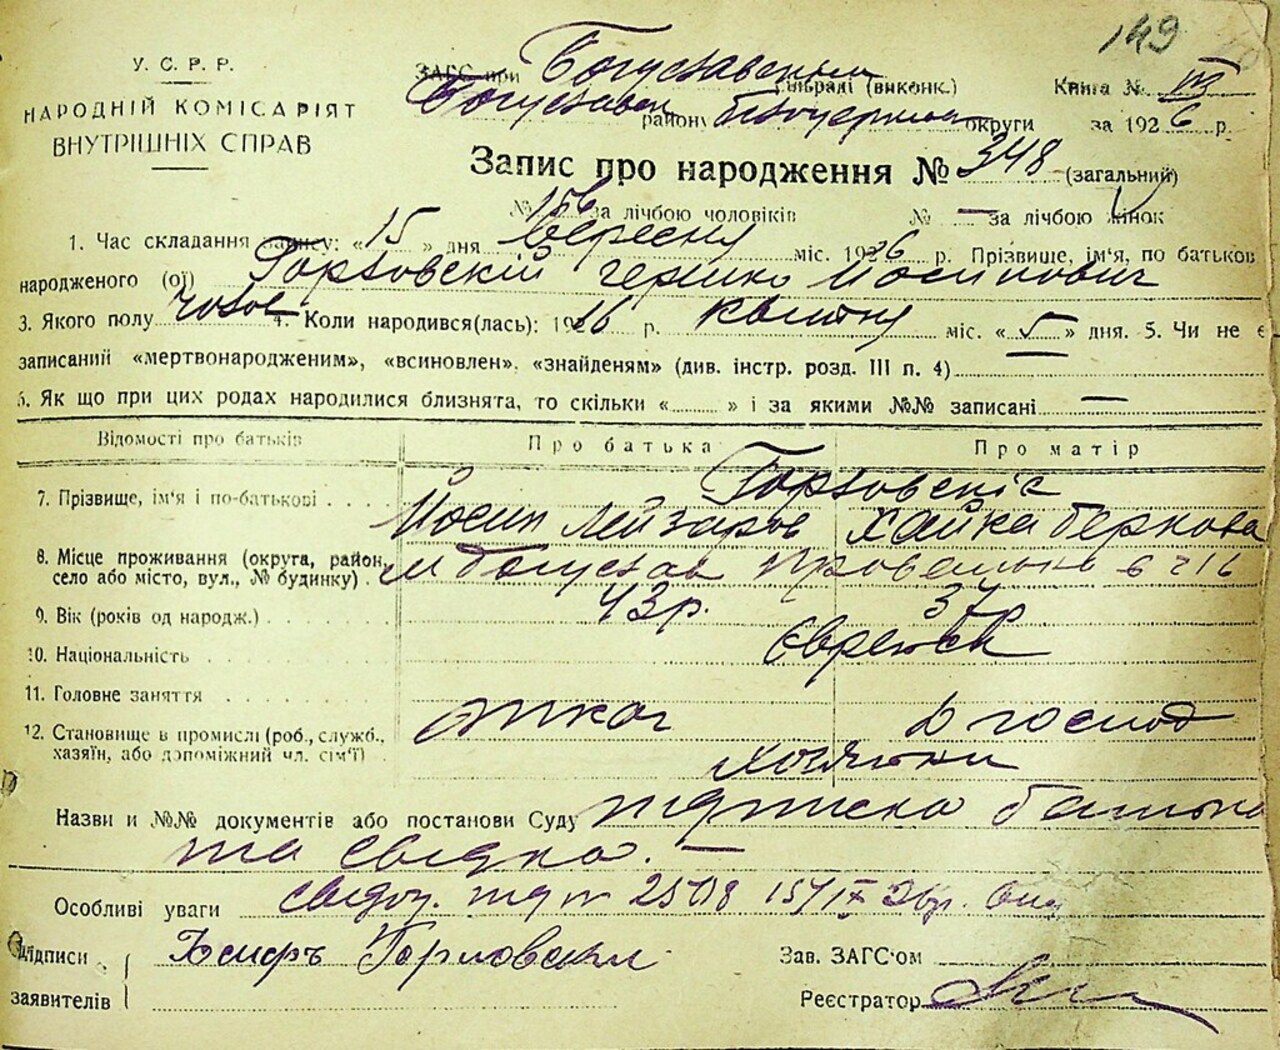 149
У. С. Р. Р.
НАРОДНІЙ КОМІСАРІЯТ
ВНУТРІШНІХ СПРАВ
ЗАГС при Богуславськім сільраді (виконк.) Книга № III
Богуславськ району Білоцерківськ округи за 1926 р.
Запис про народження № 348 (загальний)
№ 156 за лічбою чоловіків № — за лічбою жінок
1. Час складання запису: «15» дня Вересня міс. 1926 р. Прізвище, ім'я, по батькові
народженого (ої) Горловскій Гершко Йосипович
3. Якого полу чолов 4. Коли народився(лась): 1916 р. Квітня міс. «5» дня. 5. Чи не є
записаний «мертвонародженим», «всиновлен», «знайденям» (див. інстр. розд. III п. 4) —
6. Як що при цих родах народилися близнята, то скільки « » і за якими №№ записані —
Відомості про батьків Про батька Про матір
7. Прізвище, ім'я і по-батькові Горловскіє
Йосип Лейзаров Хайка Беркова
8. Місце проживання (округа, район,
село або місто, вул., № будинку) м Богуслав
9. Вік (років од народж.) 43 р. 37 р
10. Національність Єврейск
11. Головне заняття
12. Становище в промислі (роб., служб.,
хазяїн, або допоміжний чл. сім'ї) ткач д господ
Назви и №№ документів або постанови Суду підписка батька
та свідка. —
Особливі уваги свідоц.
Підписи Горловский Зав. ЗАГС'ом
заявителів Реєстратор